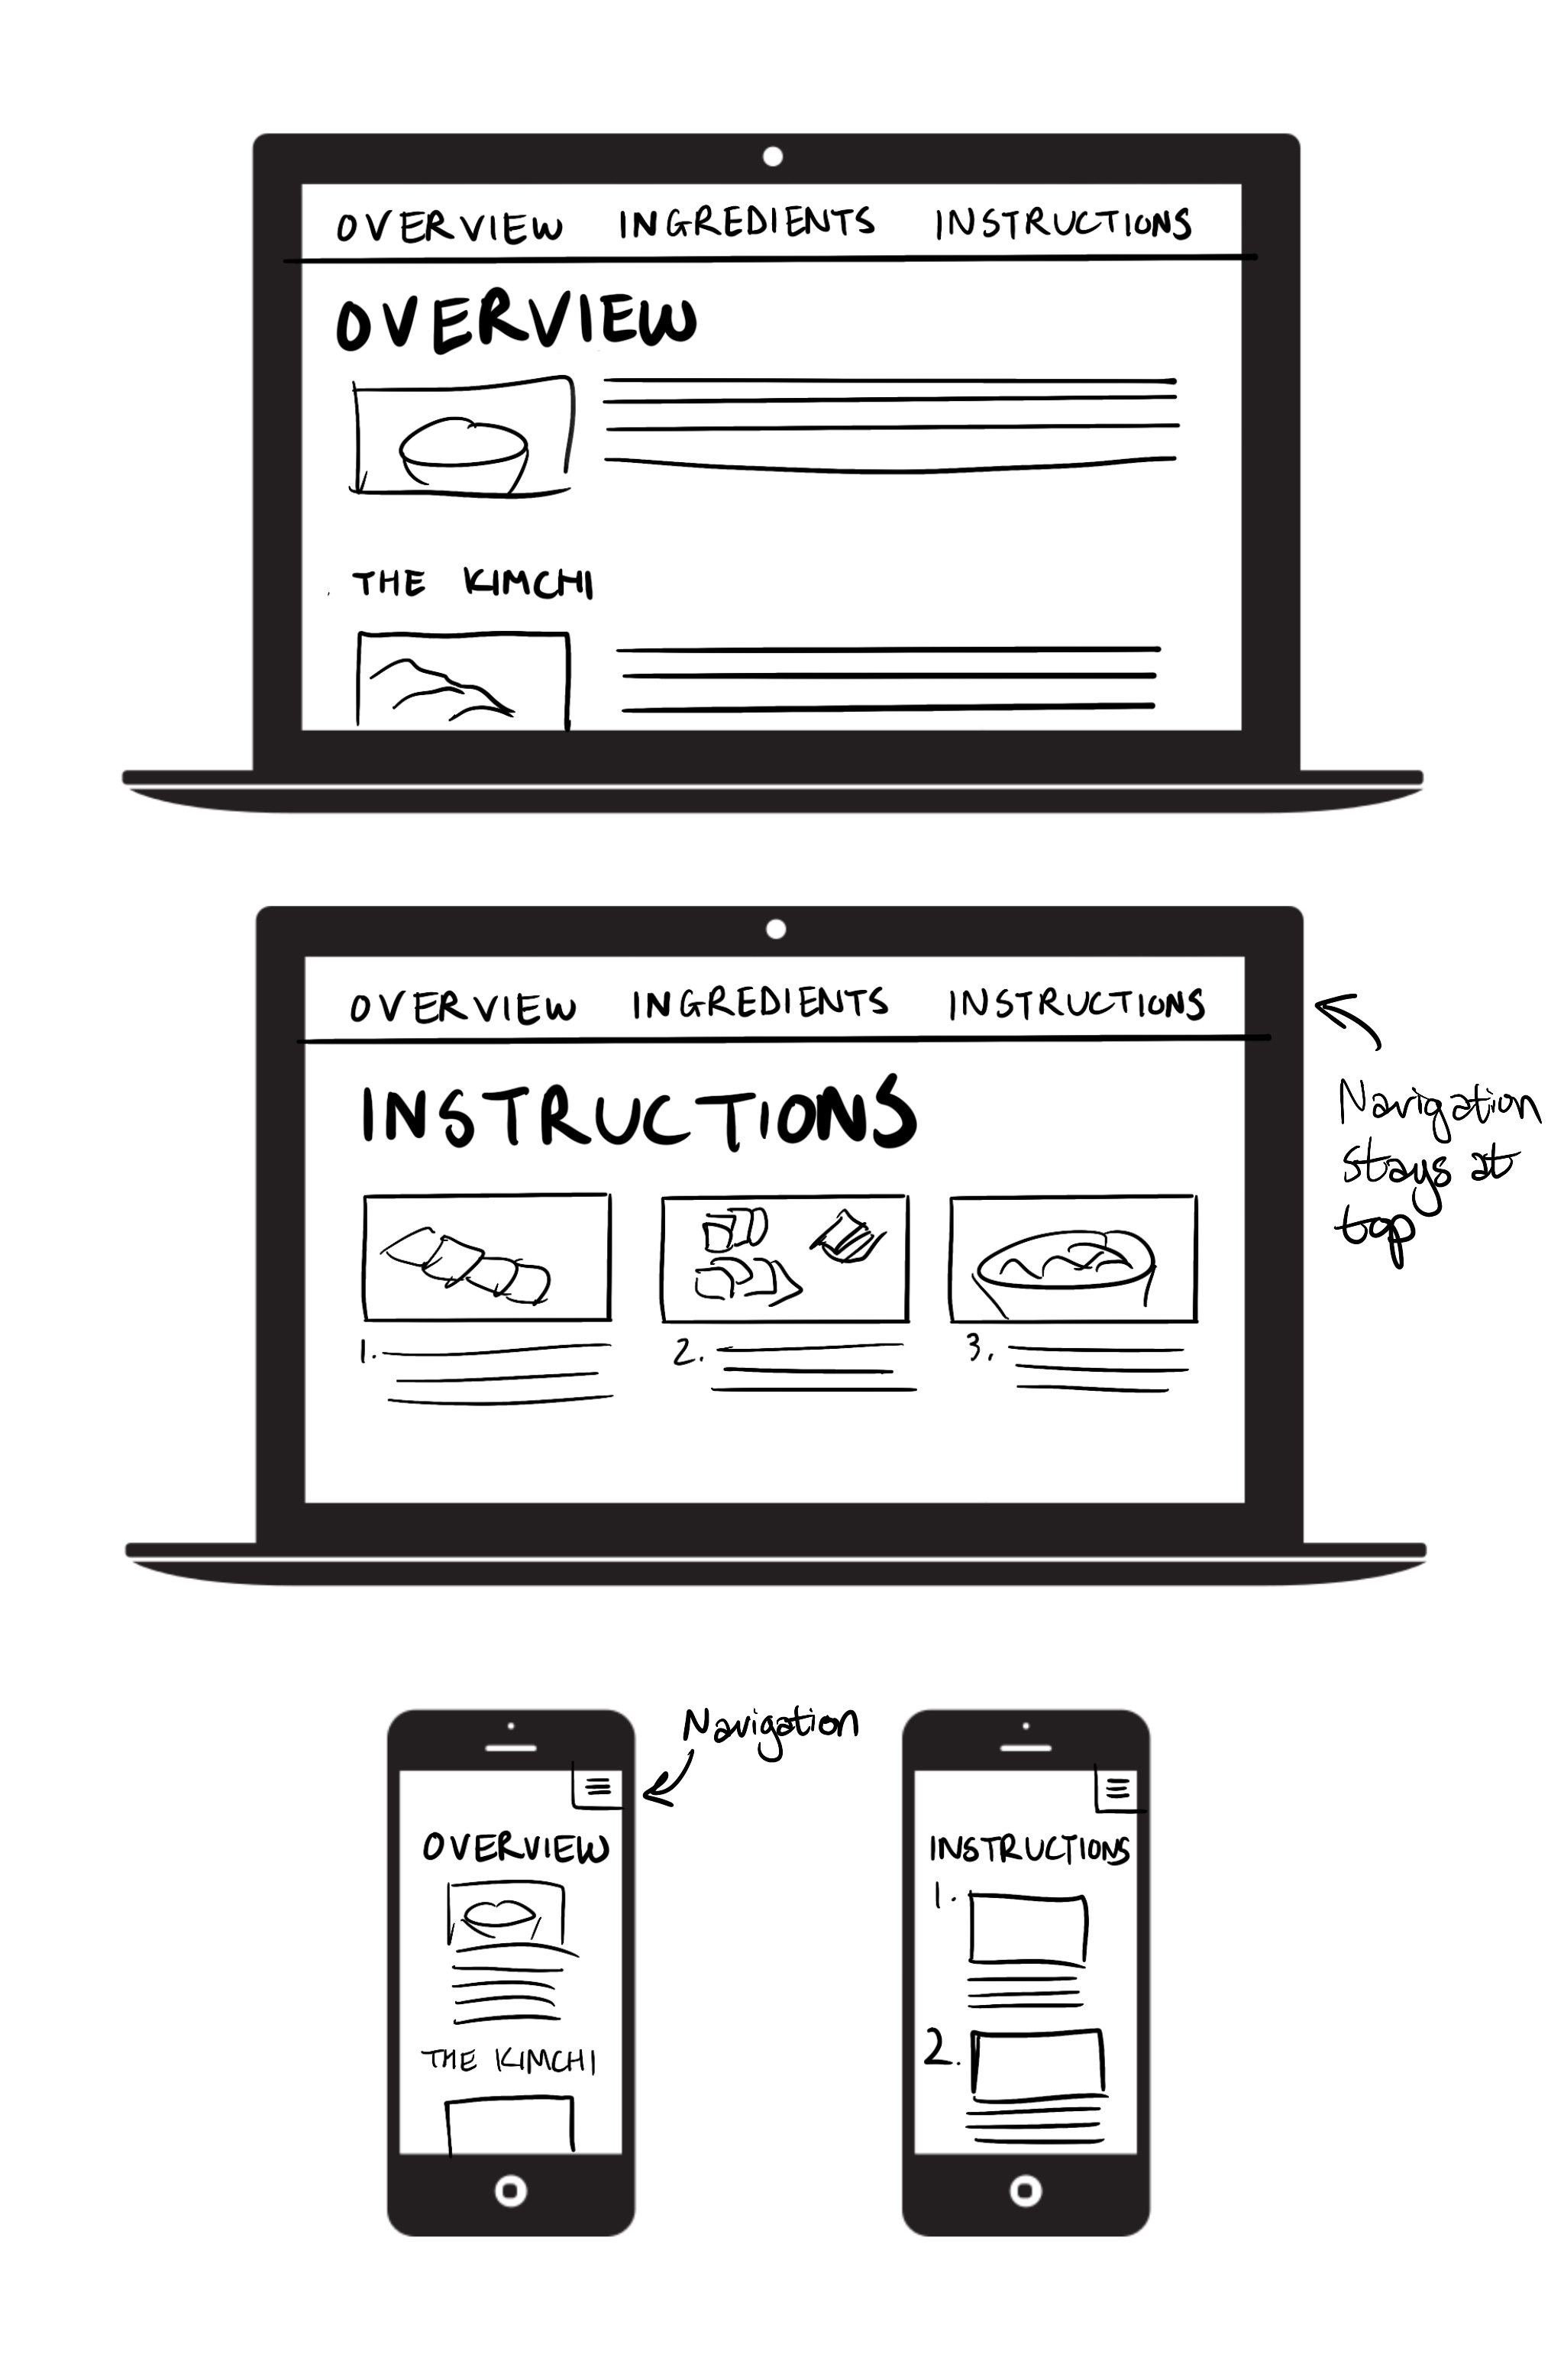 OVERVIEW INGREDIENTS INSTRUCTIONS
OVERVIEW
THE KIMCHI
OVERVIEW INGREDIENTS INSTRUCTIONS
INSTRUCTIONS
1.
2.
3.
Navigation
stays at
top
Navigation
OVERVIEW
THE KIMCHI
INSTRUCTIONS
1.
2.